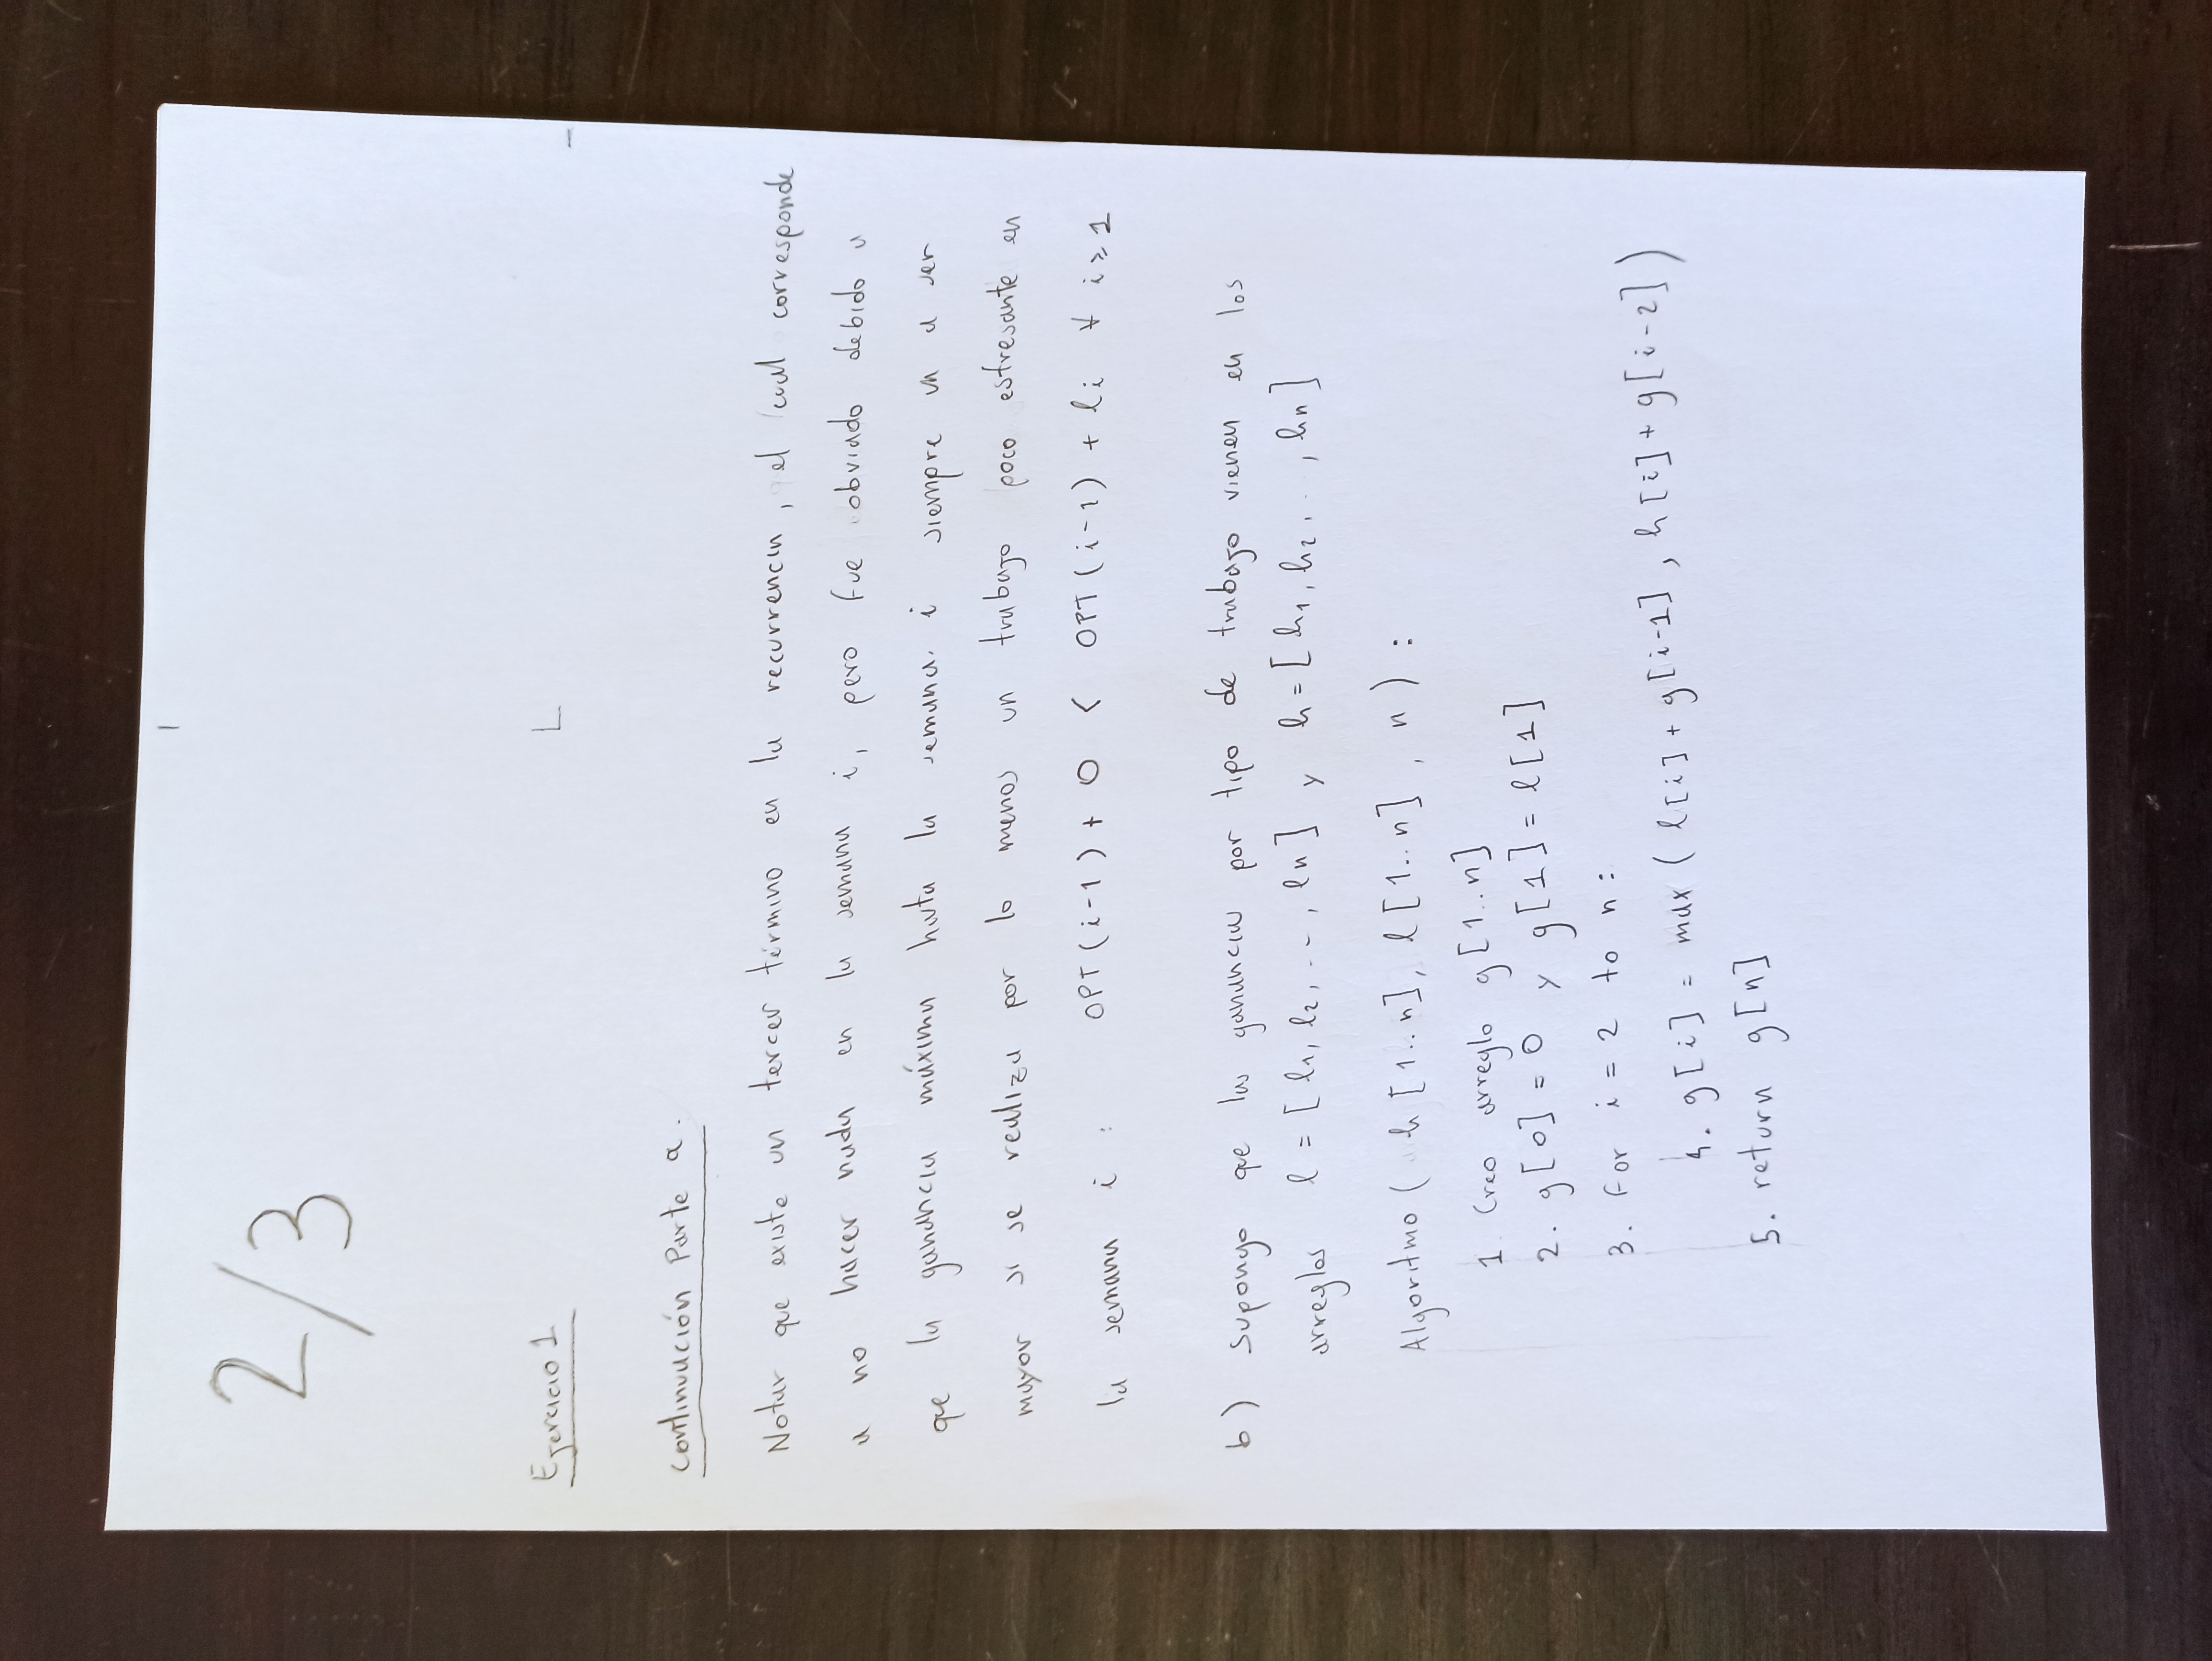 2/3
Ejercicio 1
Continuación Parte a.
Notar que existe un tercer término en la recurrencia, el cual corresponde
a no hacer nada en la semana i, pero fue obviado debido a
que la ganancia máxima hasta la semana i siempre va a ser
mayor si se realiza por lo menos un trabajo poco estresante en
la semana i : OPT(i-1) + 0 < OPT(i-1) + li ∀ i ≥ 1
b) Supongo que las ganancias por tipo de trabajo vienen en los
arreglos l = [l1, l2, ..., ln] y h = [h1, h2, ..., hn]
Algoritmo (h[1..n], l[1..n], n) :
1. Creo arreglo g[1..n]
2. g[0] = 0 y g[1] = l[1]
3. For i = 2 to n:
4. g[i] = max (l[i] + g[i-1], h[i] + g[i-2])
5. return g[n]